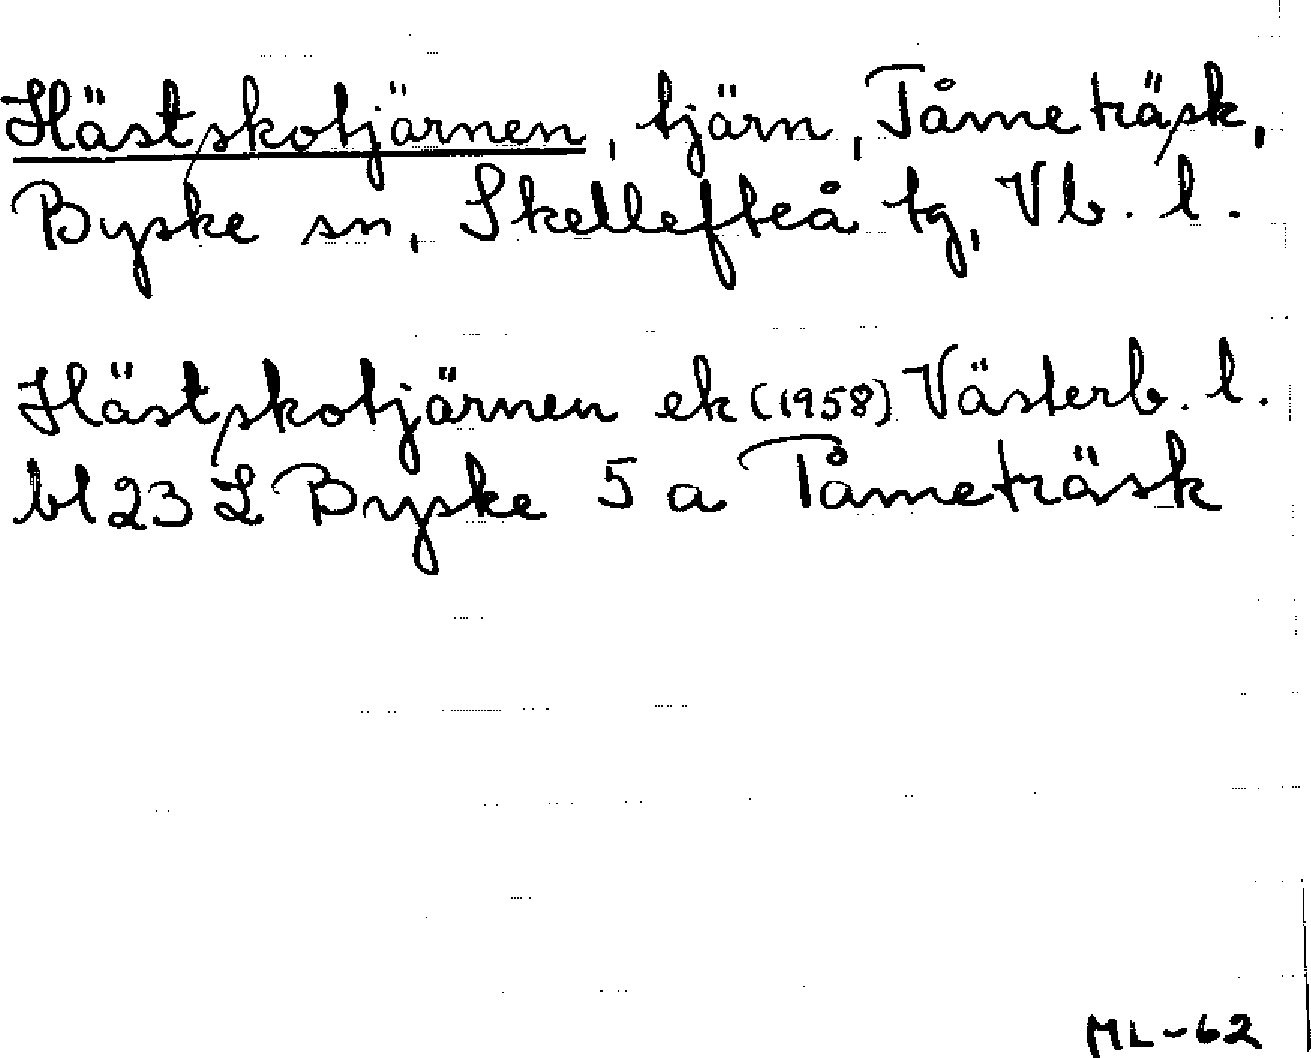 Hästskotjärnen, tjärn, Tåmeträsk,
Byske sn, Skellefteå tg, Vb. l.
Hästskotjärnen ek (1958) Västerb. l.
bl 23 L Byske 5 a Tåmeträsk
ML-62